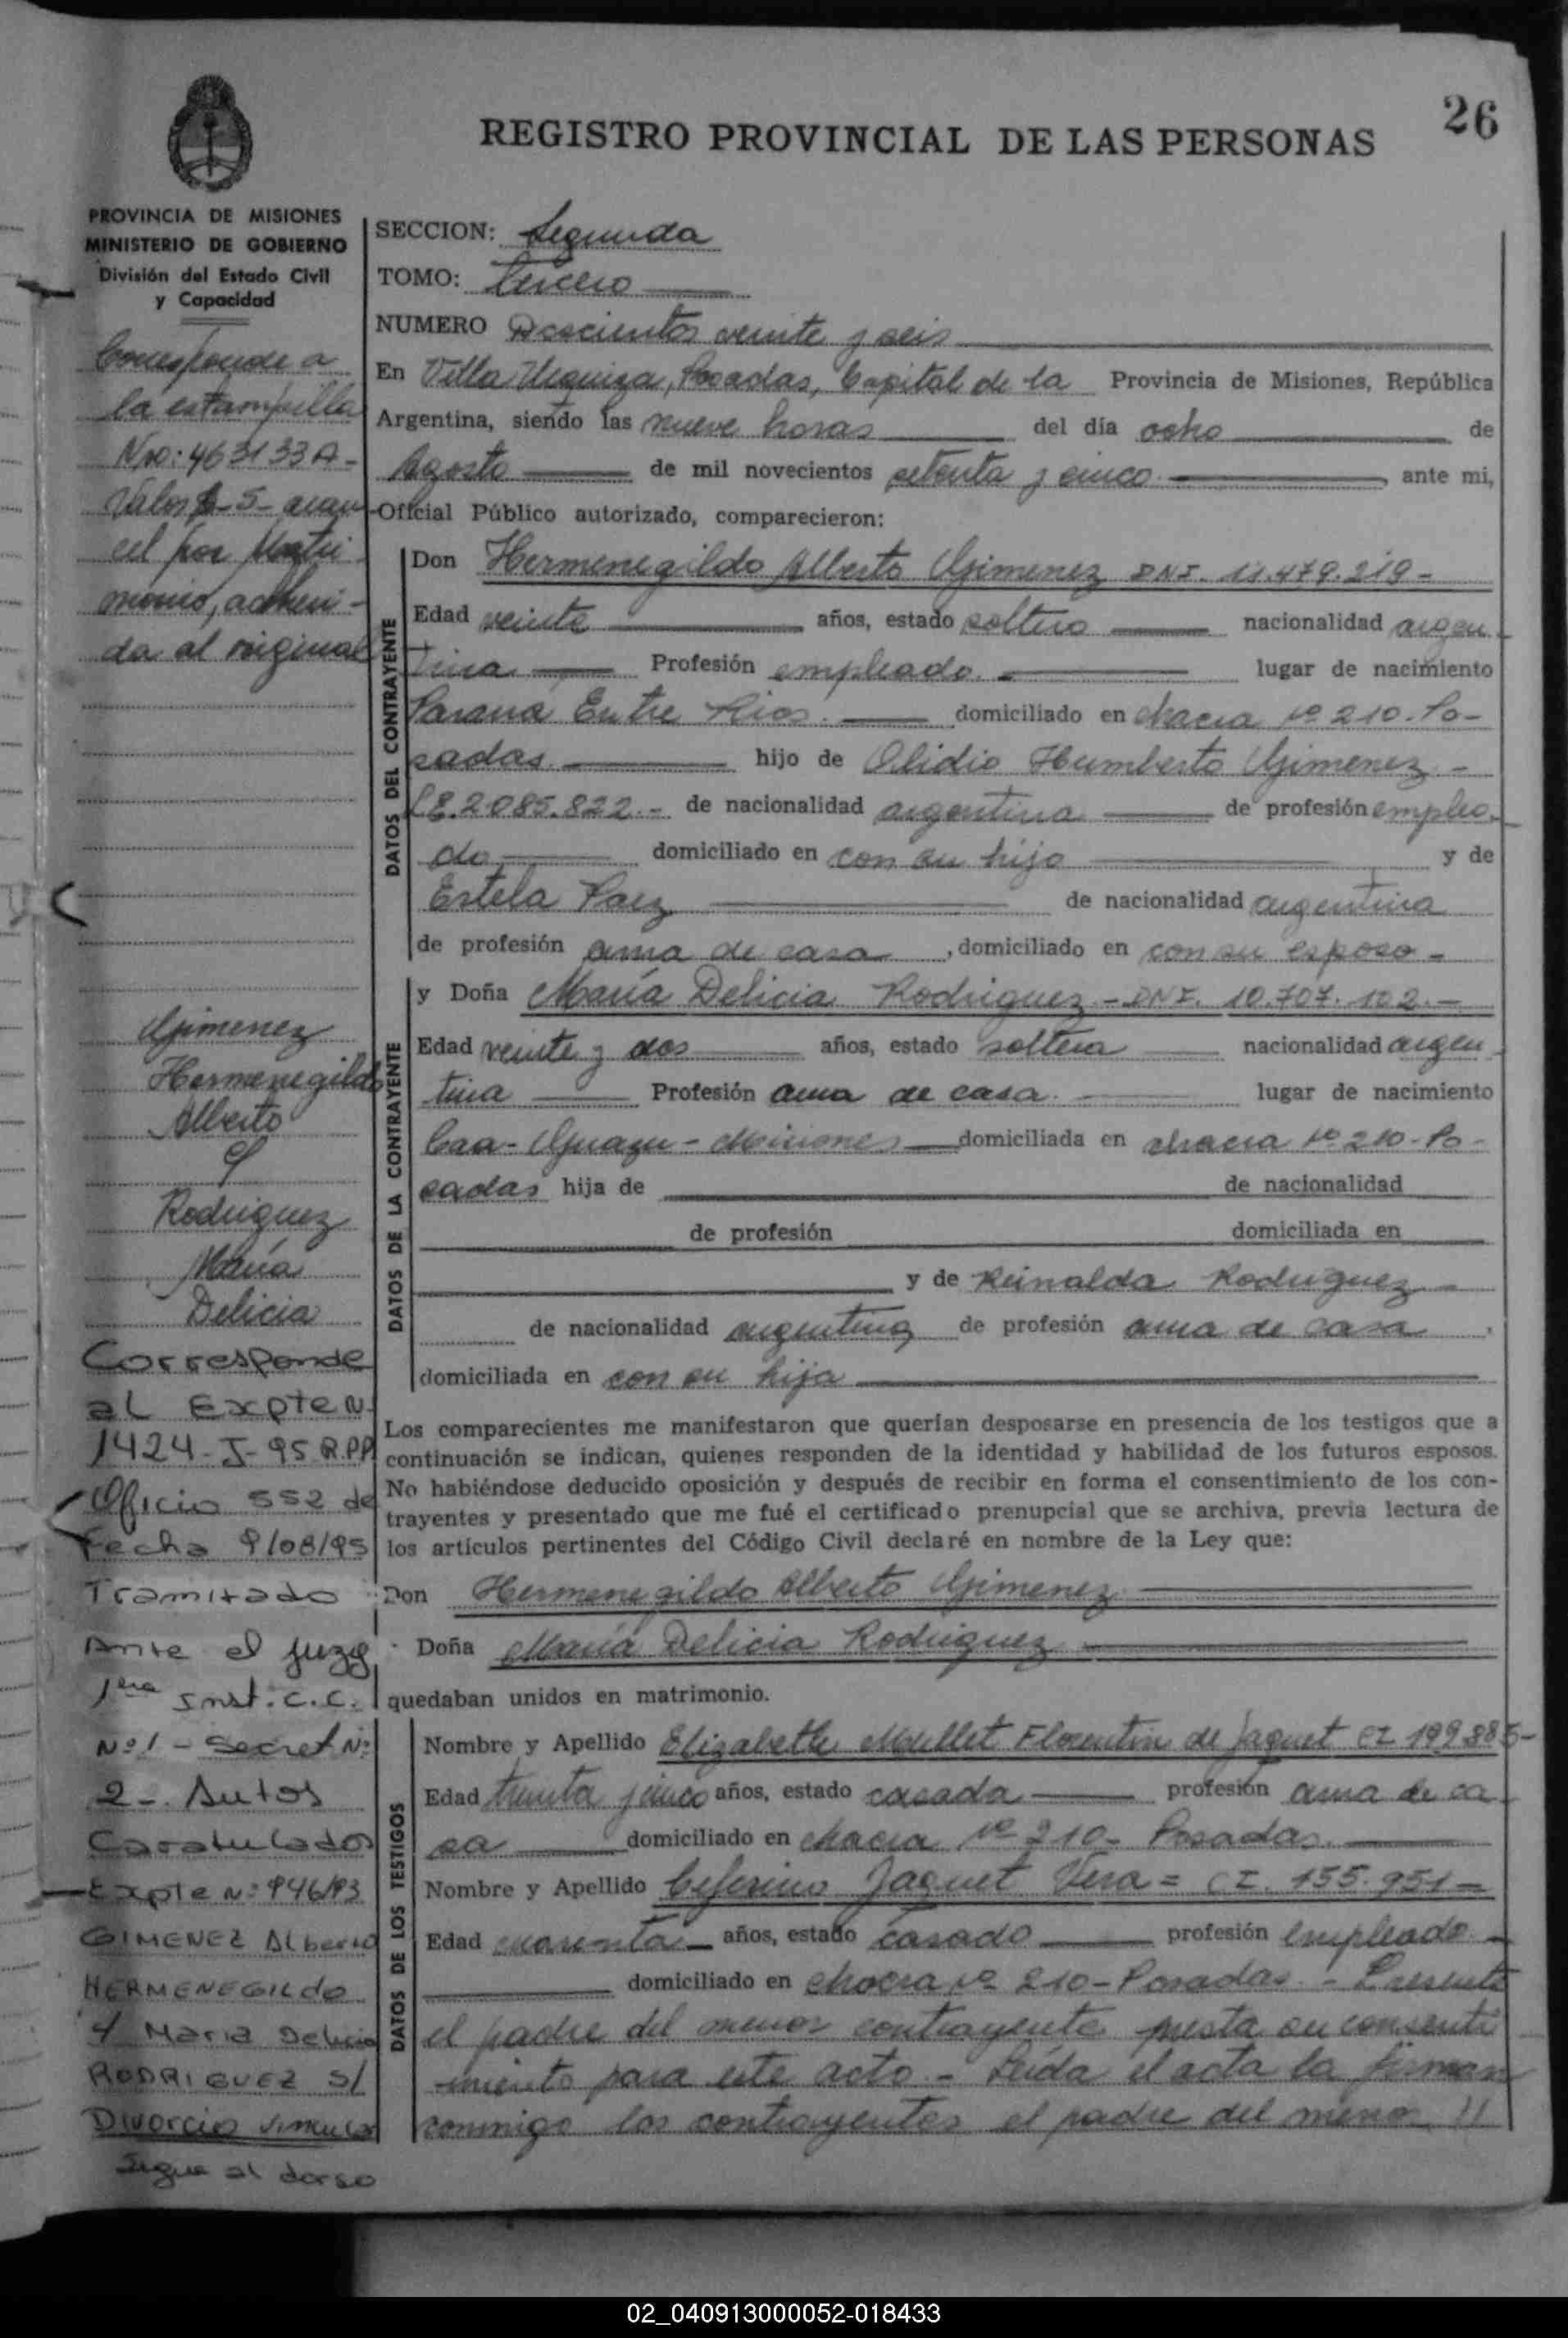 26
REGISTRO PROVINCIAL DE LAS PERSONAS
PROVINCIA DE MISIONES
MINISTERIO DE GOBIERNO
División del Estado Civil
y Capacidad
Corresponde a
la estampilla
Nro: 463133 A-
Valor $ 5- aran
cel por Matri
monio, adheri-
da al original
Gimenez
Hermenegildo
Alberto
y
Rodriguez
María
Delicia
Corresponde
al Expte N
1424-J-95 R.PP
Oficio 552 de
Fecha 9/08/95
Tramitado
Ante el Juzg
1era Inst. C.C.
Nº1 - Secret Nº
2-. Autos
Caratulados
Expte Nº 946/93
GIMENEZ Alberto
HERMENEGILdo
y Maria Delicia
RODRIGUEZ S/
Divorcio Vincular
Sigue al dorso
SECCION: Segunda
TOMO: Tercero
NUMERO Doscientos veinte y seis
En Villa Urquiza, Posadas, Capital de la Provincia de Misiones, República
Argentina, siendo las nueve horas del día ocho de
Agosto de mil novecientos setenta y cinco ante mi,
Oficial Público autorizado, comparecieron:
DATOS DEL CONTRAYENTE
Don Hermenegildo Alberto Gimenez DNI. 11.479.219-
Edad veinte años, estado soltero nacionalidad argen-
tina Profesión empleado. lugar de nacimiento
Parana Entre Rios. domiciliado en chacra Nº 210. Po-
sadas. hijo de Olidio Humberto Gimenez -
LE.2085.822.- de nacionalidad argentina de profesión emplea-
do domiciliado en con su hijo y de
Estela Paez de nacionalidad argentina
de profesión ama de casa, domiciliado en con su esposo -
DATOS DE LA CONTRAYENTE
y Doña María Delicia Rodriguez - DNI. 10.707.102.-
Edad veinte y dos años, estado soltera nacionalidad argen-
tina Profesión ama de casa. lugar de nacimiento
Caa-Guazu - Misiones domiciliada en chacra Nº 210-Po-
sadas hija de de nacionalidad
de profesión domiciliada en
y de Reinalda Rodriguez
de nacionalidad argentina de profesión ama de casa,
domiciliada en con su hija
Los comparecientes me manifestaron que querían desposarse en presencia de los testigos que a
continuación se indican, quienes responden de la identidad y habilidad de los futuros esposos.
No habiéndose deducido oposición y después de recibir en forma el consentimiento de los con-
trayentes y presentado que me fué el certificado prenupcial que se archiva, previa lectura de
los artículos pertinentes del Código Civil declaré en nombre de la Ley que:
Don Hermenegildo Alberto Gimenez
Doña María Delicia Rodriguez
quedaban unidos en matrimonio.
DATOS DE LOS TESTIGOS
Nombre y Apellido Elizabeth Mullet Florentin de Jaquet CI 199885-
Edad treinta y cinco años, estado casada profesión ama de ca-
sa domiciliado en chacra Nº 210- Posadas.
Nombre y Apellido Ceferino Jaquet Vera = CI. 155.951=
Edad cuarenta años, estado casado profesión empleado -
domiciliado en chacra Nº 210-Posadas. - Presente
el padre del menor contrayente presta su consenti
miento para este acto - Leida el acta la firman
conmigo los contrayentes el padre del menor //
02_040913000052-018433